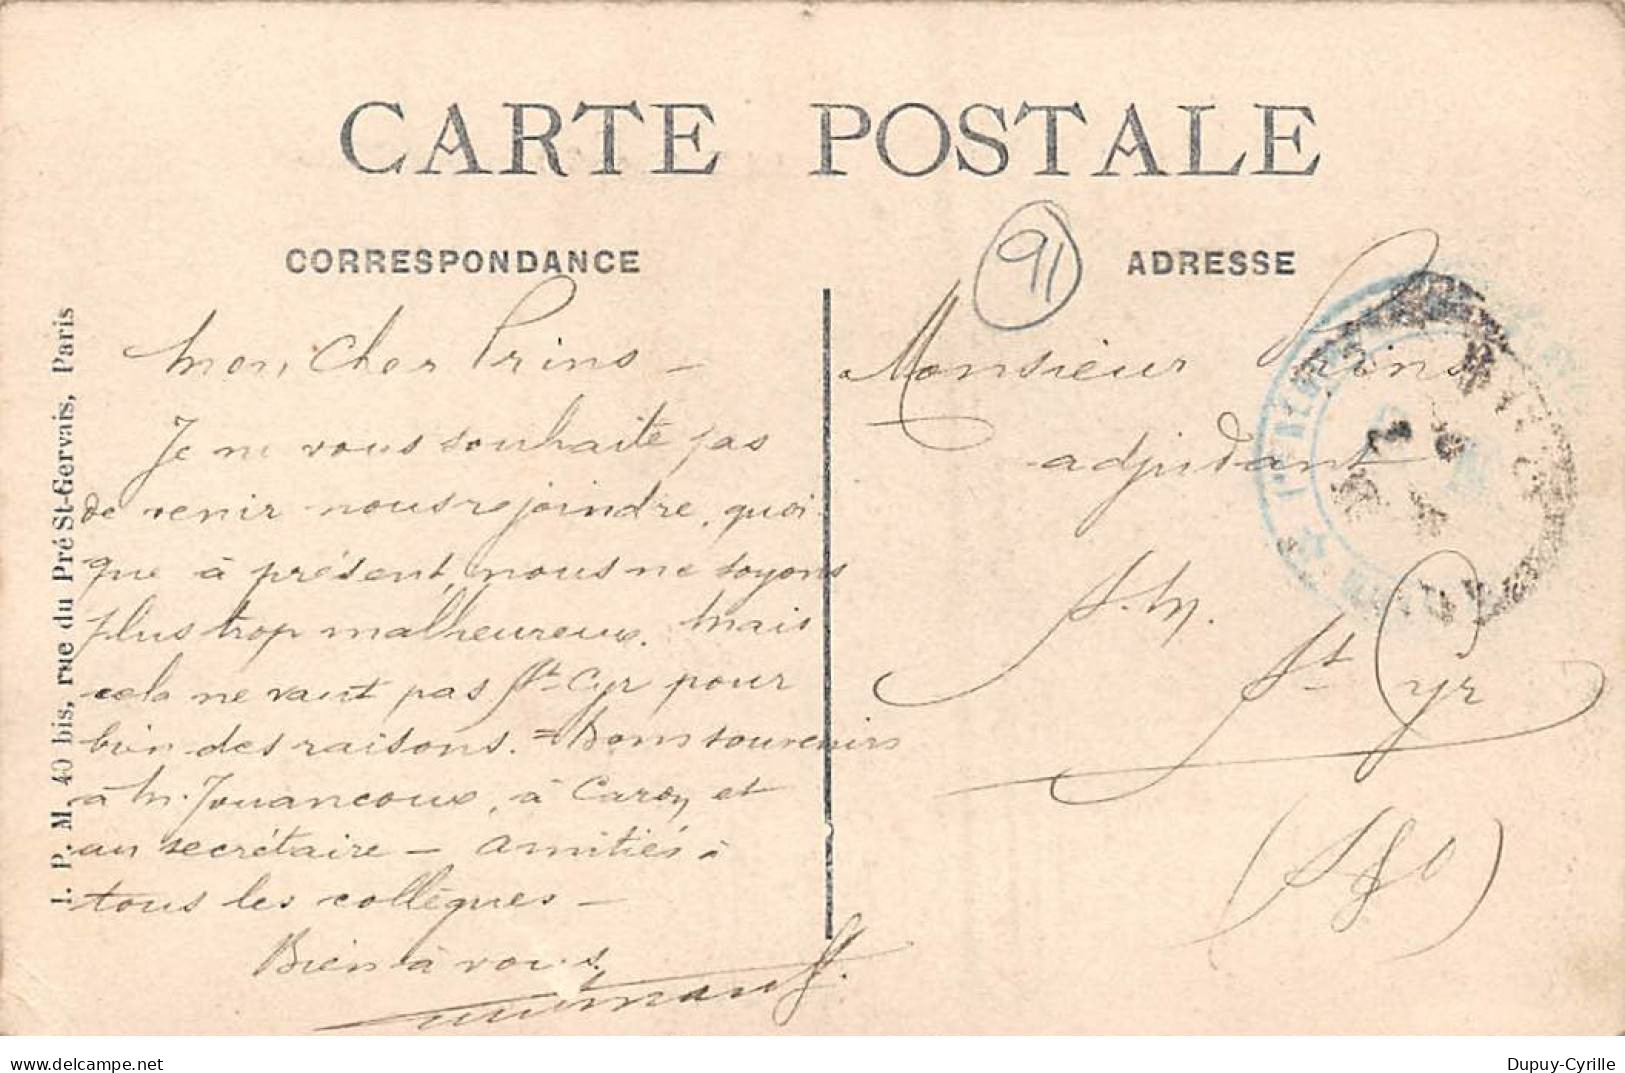 CARTE POSTALE
CORRESPONDANCE
ADRESSE
91
I. P. M. 40 bis, rue du Pré St-Gervais, Paris
Mon Cher Prins –
Je ne vous souhaite pas
de venir nous rejoindre, quoi-
que à présent, nous ne soyons
plus trop malheureux. Mais
cela ne vaut pas St-Cyr pour
bien des raisons. = Bons souvenirs
à M. Jouancoux, à Caron et
au secrétaire – amitiés à
tous les collègues –
Bien à vous.
Monsieur Prins
adjudant
S. M.
St Cyr
(S & O)
delcampe.net
Dupuy-Cyrille